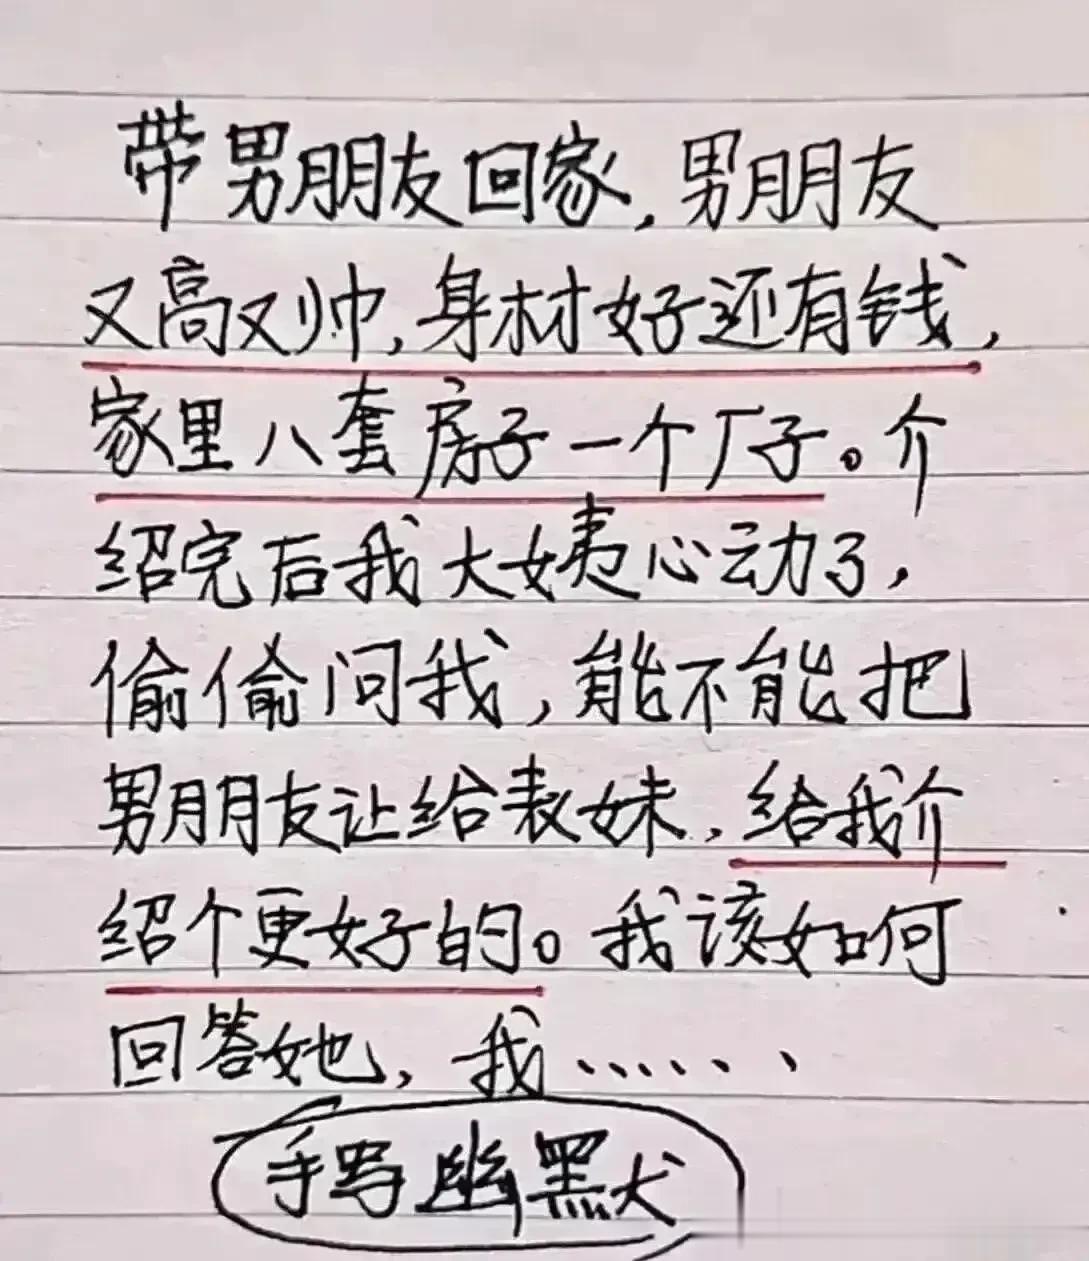 带男朋友回家,男朋友
又高又帅,身材好还有钱,
家里八套房子一个厂子。介
绍完后我大姨心动了,
偷偷问我,能不能把
男朋友让给表妹,给我介
绍个更好的。我该如何
回答她,我......
手写幽黑犬